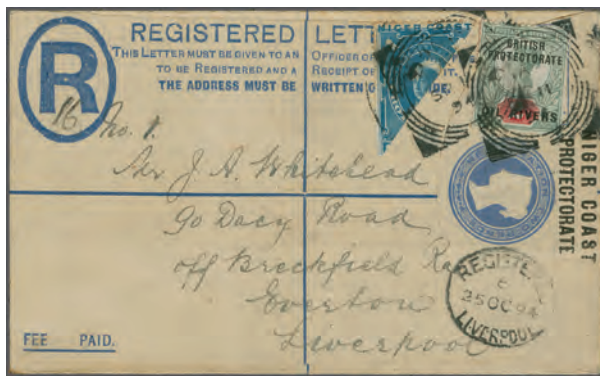 REGISTERED LETT
THIS LETTER MUST BE GIVEN TO AN OFFICER OF
TO BE REGISTERED AND A RECEIPT OF IT.
THE ADDRESS MUST BE WRITTEN O DE.
R
NIGER COAST
BRITISH
PROTECTORATE
OIL RIVERS
NIGER COAST
PROTECTORATE
16
No. 1.
J. A. Whitehead
90 Dacy Road
off Breckfield
Everton
Liverpool
REGISTE
25 OC 94
LIVERPOOL
FEE PAID.